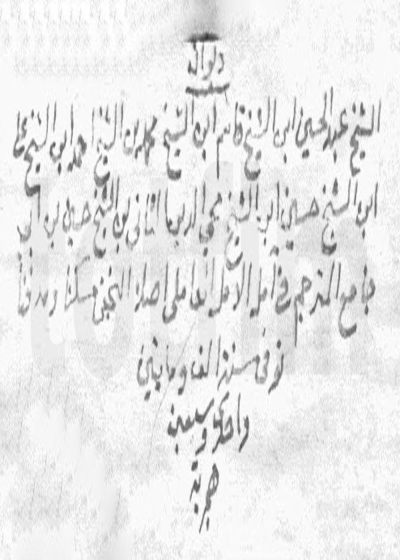 ديوان
الشيخ عبد الحسين ابن الشيخ قاسم ابن الشيخ محمد بن الشيخ احمد ابن الشيخ علي
ابن الشيخ حسين ابن الشيخ محي الدين الثاني بن الشيخ حسين بن ابي
جامع المترجم في امل الامل العاملي اصلا النجفي مسكنا ومدفنا
توفى سنة الف ومايتين
واحد وسبعين
هجرية